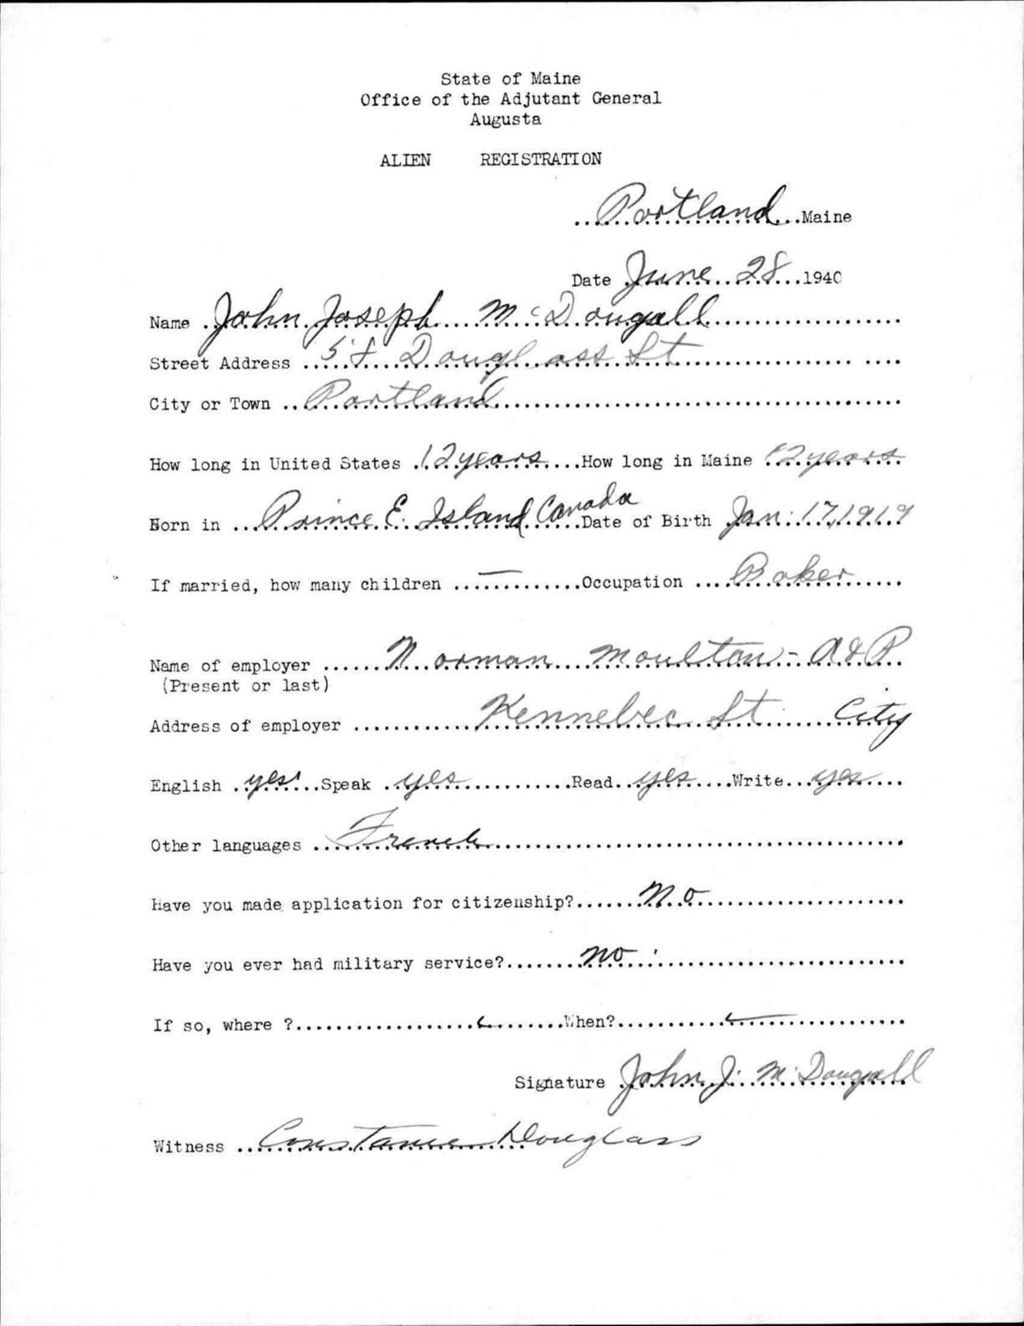 State of Maine
Office of the Adjutant General
Augusta
ALIEN REGISTRATION
Portland Maine
Date June 28 1940
Name John Joseph McDougall
Street Address 58 Douglass St
City or Town Portland
How long in United States 12 years How long in Maine 12 years
Born in Prince E. Island Canada Date of Birth Jan. 17, 1919
If married, how many children — Occupation Baker
Name of employer Norman Moulton - A & P
(Present or last)
Address of employer Kennebec St City
English yes Speak yes Read yes Write yes
Other languages French
Have you made application for citizenship? No
Have you ever had military service? no
If so, where ? When?
Signature John J. McDougall
Witness Constance Douglass